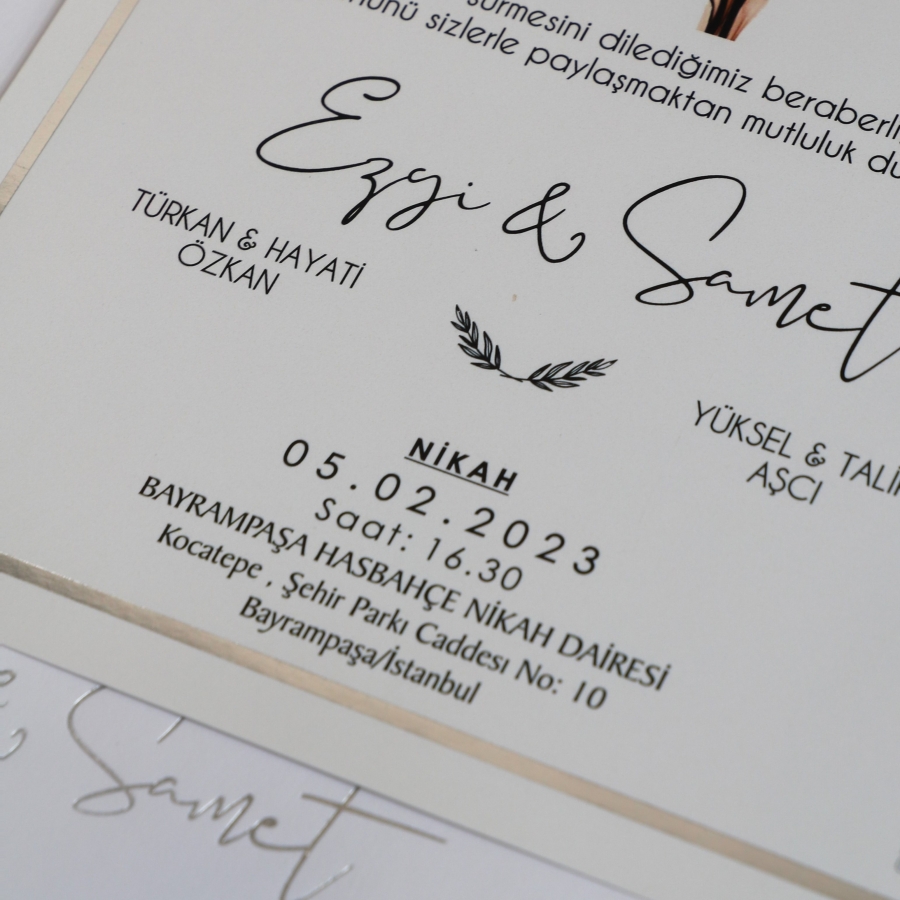 sürmesini dilediğimiz
sizlerle paylaşmaktan mutluluk
Ezgi & Samet
TÜRKAN & HAYATİ
ÖZKAN
YÜKSEL &
AŞCI
NİKAH
05.02.2023
Saat: 16.30
BAYRAMPAŞA HASBAHÇE NİKAH DAİRESİ
Kocatepe , Şehir Parkı Caddesı No: 10
Bayrampaşa/İstanbul
Samet